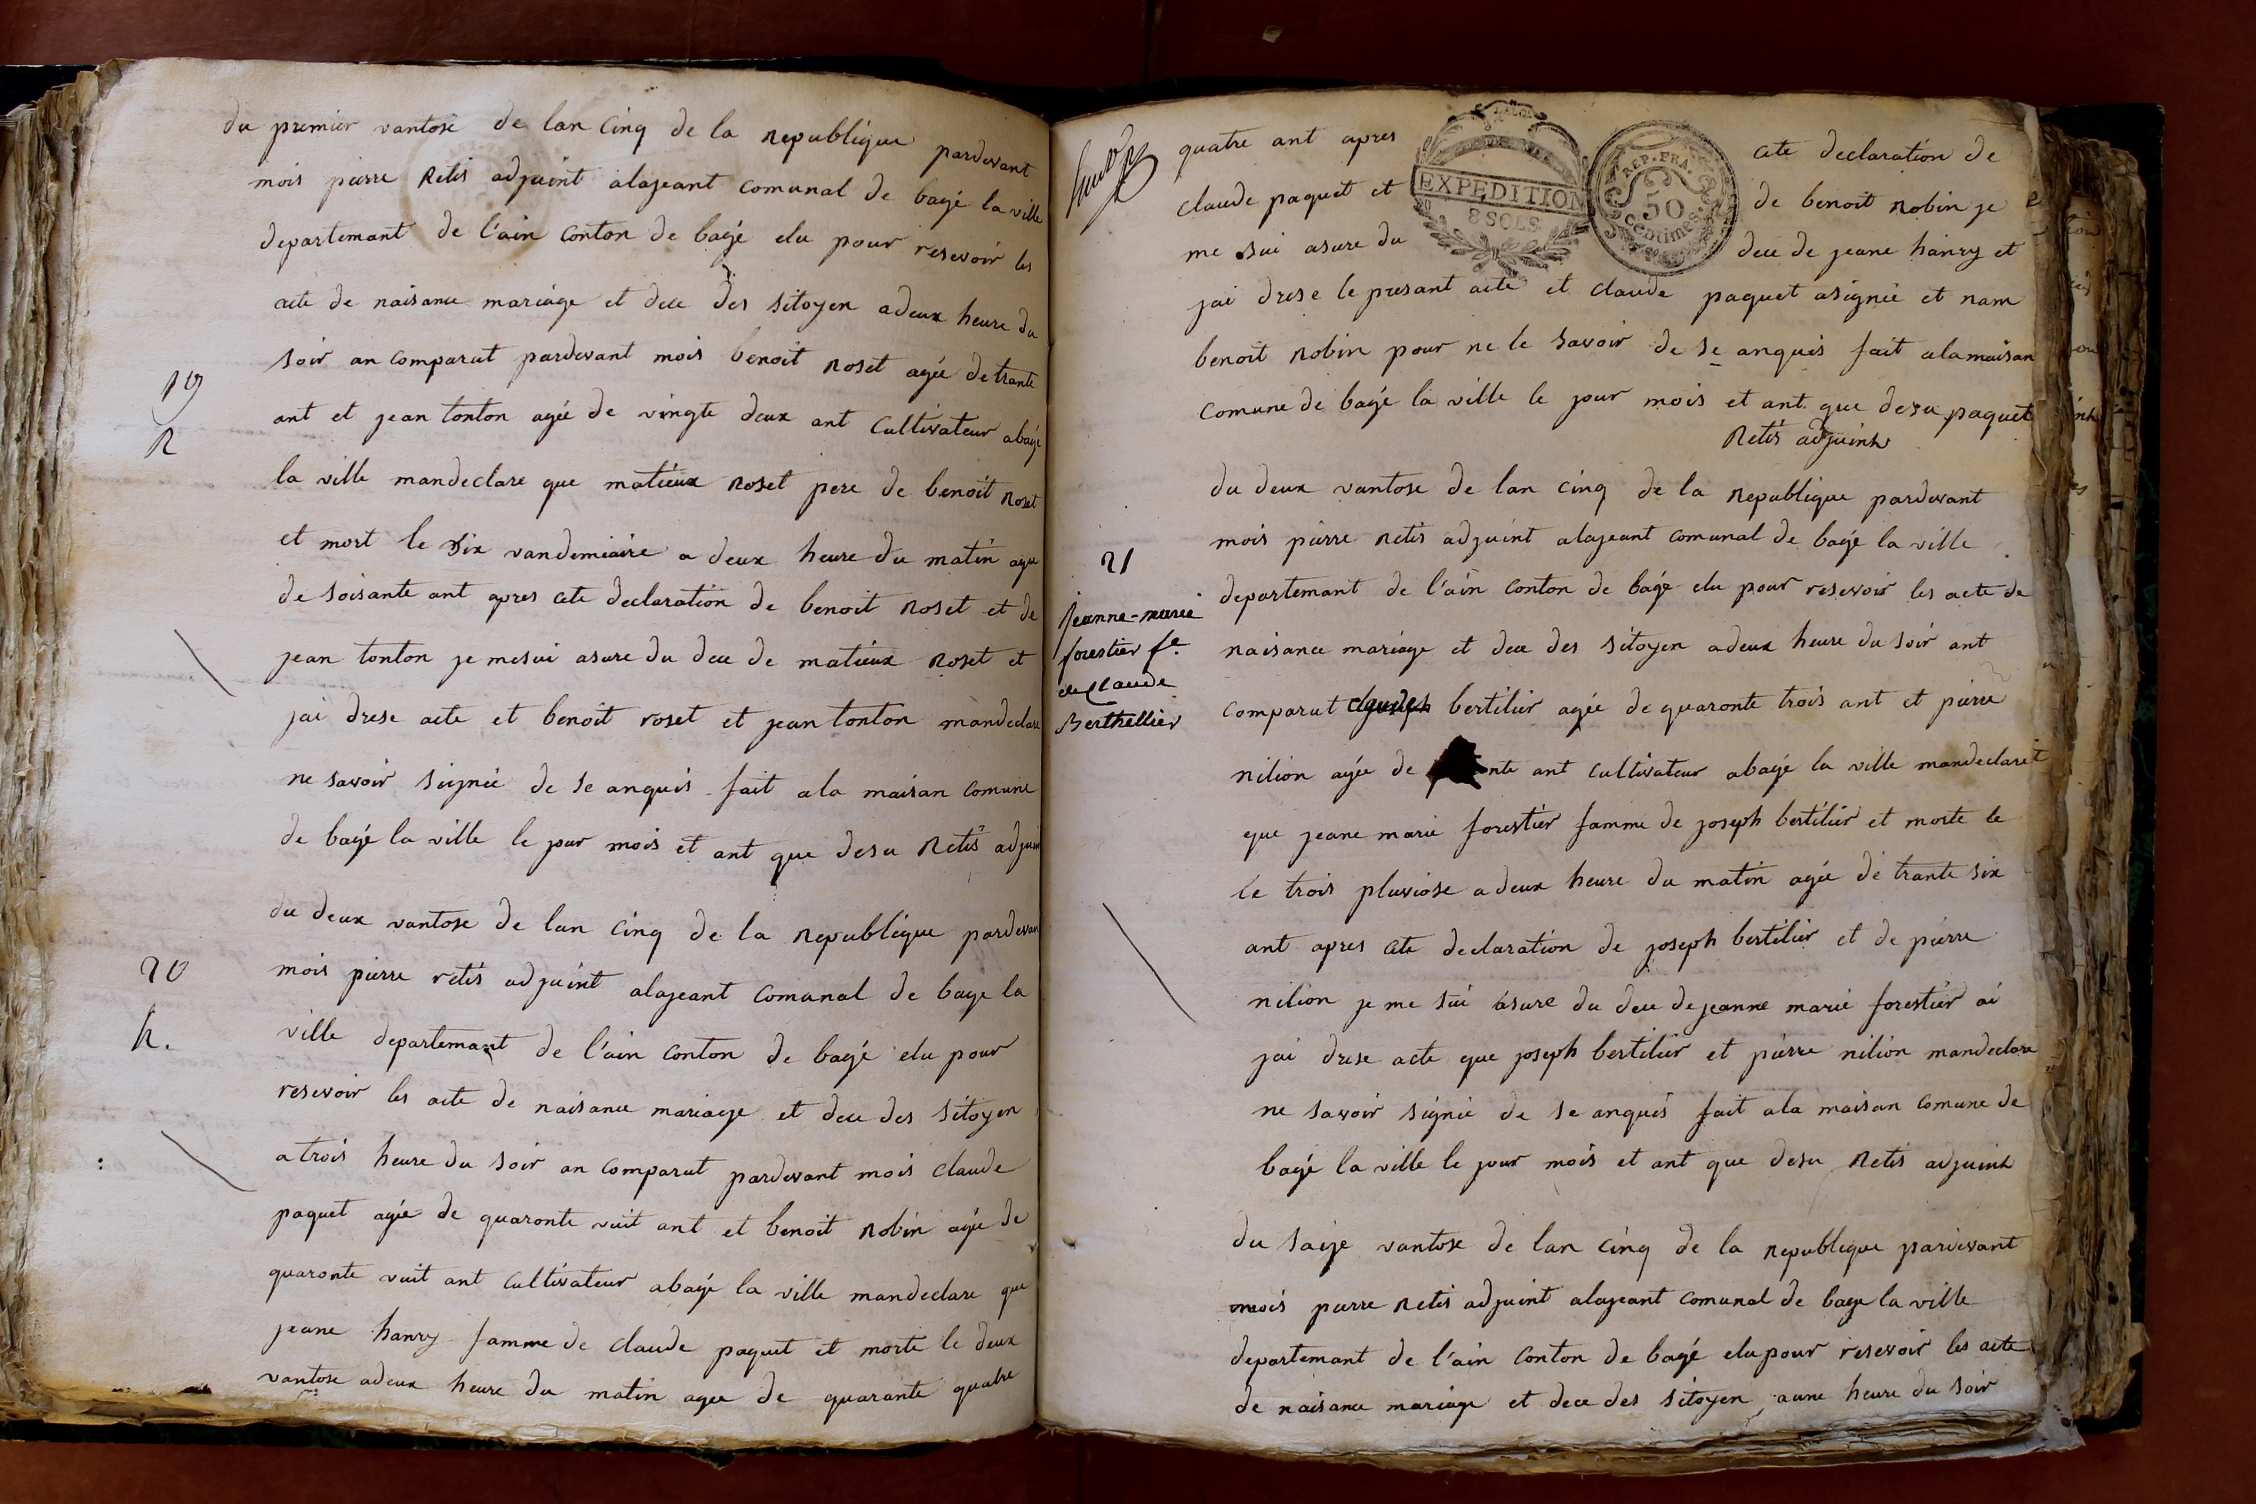 du premier vantose de lan cinq de la republique pardevant
mois pierre Retis adjuint alajeant comunal de bagé la ville
departemant de l'ain conton de bagé elu pour resevoir les
acte de naisance mariage et dece des sitoyen adeux heure du
soir an comparut pardevant mois benoit roset agée de trante
19
ant et jean tonton agée de vingte deux ant cultivateur abagé
R
la ville mandeclare que matieux roset pere de benoit roset
et mort le dix vandemiaire a deux heure du matin agee
de soisante ant apres cete declaration de benoit roset et de
jean tonton je mesui asure du dece de matieux roset et
jai drese acte et benoit roset et jean tonton mandeclare
ne savoir signié de se anquis fait ala maisan comune
de bagé la ville le jour mois et ant que desu Retis adjuin
du deux vantose de lan cinq de la republique pardevan
20
mois pierre retis adjuint alajeant comunal de bage la
h.
ville departemant de l'ain conton de bagé elu pour
resevoir les acte de naisance mariage et dece des sitoyen
atrois heure du soir an comparut pardevant mois claude
paquet agée de quaronte vuit ant et benoit robin agée de
quaronte vuit ant cultivateur abagé la ville mandeclare que
jeane hanry famme de claude paquet et morte le deux
vantose adeux heure du matin agee de quarante quatre
quatre ant apres cete declaration de
claude paquet et de benoit robin je
me sui asure du dece de jeane hanry et
EXPEDITION
8 SOLS
REP. FRA.
50
Centimes
jai drese le presant acte et claude paquet asignié et nam
benoit robin pour ne le savoir de se anquis fait alamaisan
comune de bagé la ville le jour mois et ant que desu paquet
Retis adjuint
du deux vantose de lan cinq de la republique pardevant
mois pierre retis adjuint alajeant comunal de bagé la ville
21
departemant de l'ain conton de bagé elu pour resevoir les acte de
Jeanne-marie
forestier fe.
de Claude
Berthellier
naisance mariage et dece des sitoyen adeux heure du soir ant
comparut bertilier agée de quaronte trois ant et pierre
nilion agée de nte ant cultivateur abagé la ville mandeclaret
que jeane marie forestier famme de joseph bertilier et morte le
le trois pluviose adeux heure du matin agée de trante six
ant apres cete declaration de joseph bertilier et de pierre
nilion je me sui asure du dece de jeanne marie forestier ai
jai drese acte que joseph bertilier et pierre nilion mandeclare
ne savoir signié de se anquis fait ala maisan comune de
bagé la ville le jour mois et ant que desu Retis adjuint
du saize vantose de lan cinq de la republique pardevant
mois pierre Retis adjuint alajeant comunal de bage la ville
departemant de l'ain conton de bagé elu pour resevoir les acte
de naisance mariage et dece des sitoyen aune heure du soir